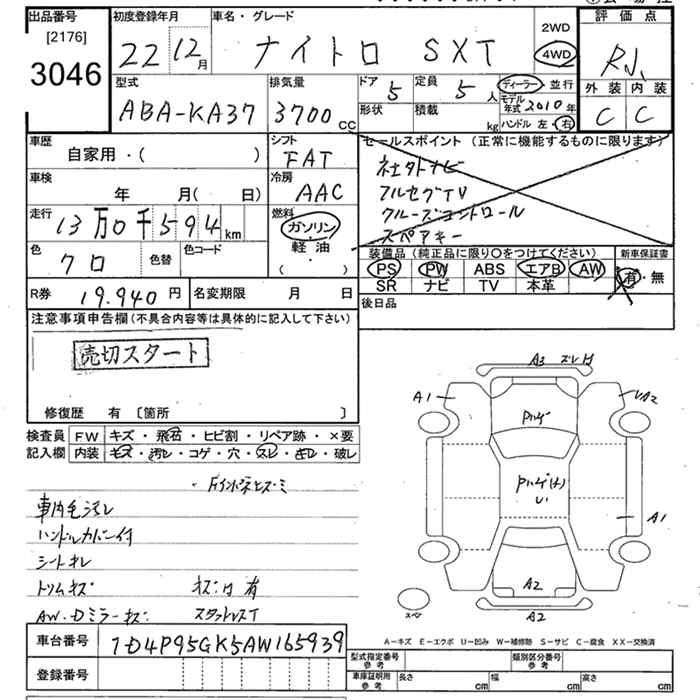 出品番号 初度登録年月 車名・グレード 2WD 評価点
[2176] 22年12月 ナイトロ SXT 4WD
3046
型式 排気量 ドア 5 定員 5人 ディーラー・並行 外装 内装
ABA-KA37 3700cc 形状 積載 kg モデル年式 2010年 C C
ハンドル 左・右
車歴 シフト セールスポイント (正常に機能するものに限ります)
自家用・( ) FAT 社外ナビ
車検 冷房 フルセグTV
年 月( 日) AAC クルーズコントロール
走行 燃料 スペアキー
13万0千594km ガソリン・軽油・( )
色 色替 色コード 装備品 (純正品に限り〇をつけてください) 新車保証書
クロ PS PW ABS エアB AW 有・無
SR ナビ TV 本革
R券 19.940円 名変期限 月 日 後日品
注意事項申告欄(不具合内容等は具体的に記入して下さい)
売切スタート
修復歴 有 〔箇所 〕
検査員 FW キズ・飛石・ヒビ割・リペア跡・×要
記入欄 内装 キズ・汚レ・コゲ・穴・スレ・キレ・破レ
車内毛汚レ
ハンドルカバー付
シートキレ
トリムキズ
AW・Dミラーキズ スタッドレスT
A3
A1
A2
A1
A2
A2
スペア
A−キズ E−エクボ U−凹み W−補修跡 S−サビ C−腐食 XX−交換済
車台番号 1D4P95GK5AW165939
型式指定番号 参考 類別区分番号 参考
登録番号 車庫証明用 参考 長さ cm 幅 cm 高さ cm